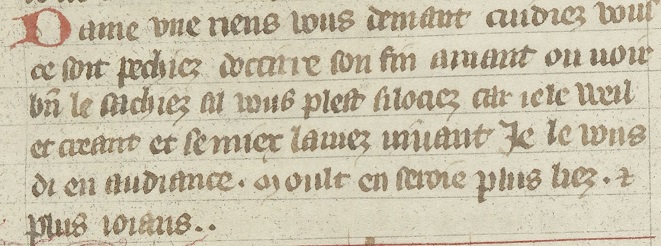 Dame vne riens vous demant cuidiez vous
ce soit pechiez doccire son fin amant ou uoir
bñ le sachiez sil vous plest silociez car ie le vueil
et creant et se miex lamez uiuant Je le vous
di en audiance · Moult en seroie plus liez · ⁊
plus ioians··